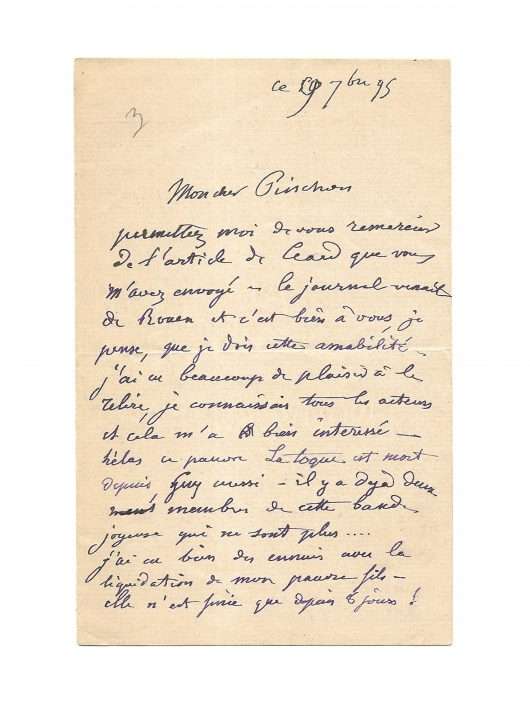 ce 29 7bre 95
3
Mon cher Pinchon
permettez moi de vous remercier
de l'article de Ceard que vous
m'avez envoyé – le journal venait
de Rouen et c'est bien à vous, je
pense, que je dois cette amabilité –
j'ai eu beaucoup de plaisir à le
relire, je connaissais tous les acteurs
et cela m'a bien interessé –
hélas ce pauvre La toque est mort
depuis Guy aussi – il y a dejà deux
membres de cette bande
joyeuse qui ne sont plus ....
j'ai eu bien des ennuis avec la
liquidation de mon pauvre fils –
elle n'est finie que depuis 8 jours !